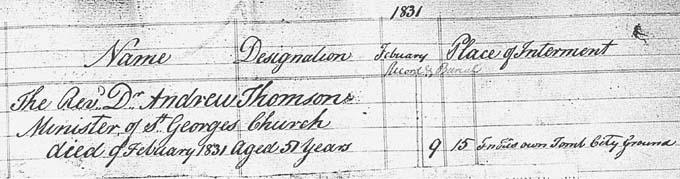 1831
Name Designation Febuary Place of Interment
Record of Burial
The Revd. Dr. Andrew Thomson
Minister of St. Georges Church
died 9 Febuary 1831 Aged 51 Years 9 15 In his own Tomb City Ground